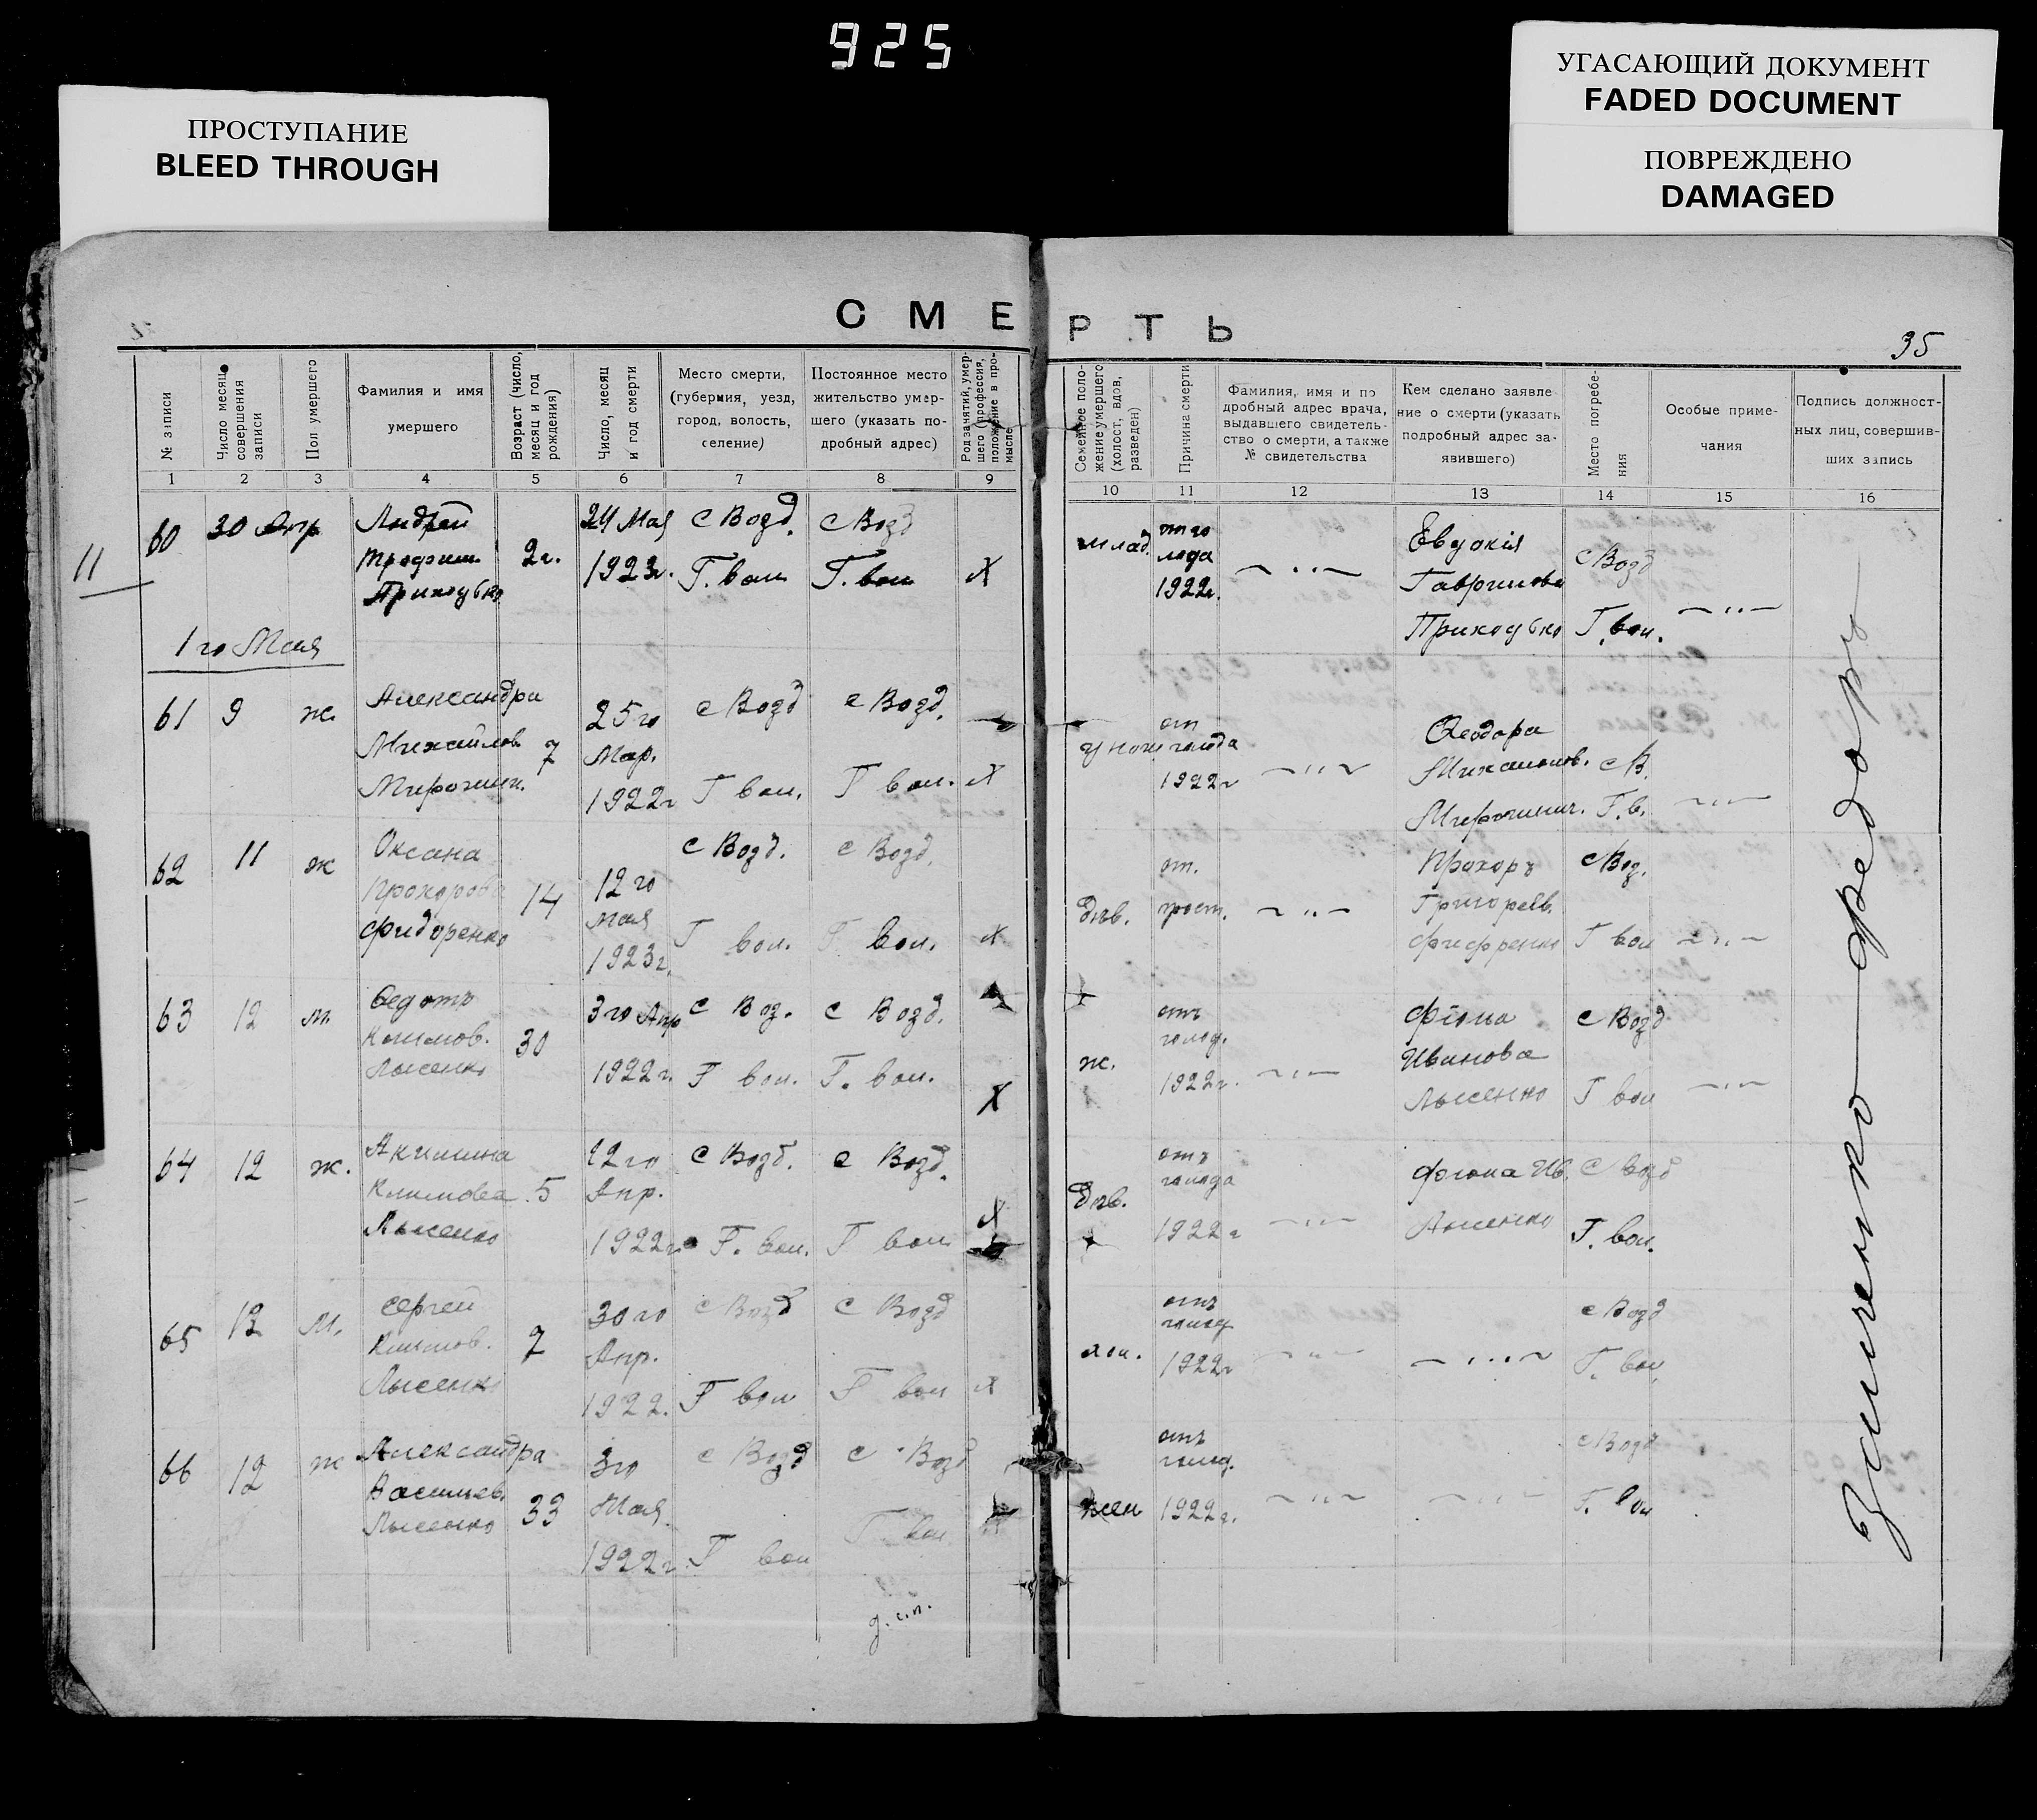 925
ПРОСТУПАНИЕ
BLEED THROUGH
УГАСАЮЩИЙ ДОКУМЕНТ
FADED DOCUMENT
ПОВРЕЖДЕНО
DAMAGED
СМЕРТЬ
35
№ записи
Число месяц совершения записи
Пол умершего
Фамилия и имя умершего
Возраст (число, месяц и год рождения)
Число, месяц и год смерти
Место смерти, (губерния, уезд, город, волость, селение)
Постоянное место жительство умершего (указать подробный адрес)
Род занятий, умершего (профессия, положение в промысле
Семейное положение умершего (холост, вдов, разведен)
Причина смерти
Фамилия, имя и подробный адрес врача, выдавшего свидетельство о смерти, а также № свидетельства
Кем сделано заявление о смерти (указать подробный адрес заявившего)
Место погребения
Особые примечания
Подпись должностных лиц, совершивших запись
1 2 3 4 5 6 7 8 9 10 11 12 13 14 15 16
11
60 30 Апр Андрей 24 Мая с Возд. с Возд
2г. 1923г. Г. вол Г. вол х
млад. от голода 1922г. — „ — Евдокія с Возд
Приходько Г. вол. — „ —
1го Мая
61 9 ж. Александра 25го с Возд с Возд.
Михайлов. 7 Мар.
1922г Г вол. Г вол. х
от голода 1922г — „ — Ѳеодора
Михайлов. с В.
Г. в. — „ —
62 11 ж Оксана с Возд. с Возд.
Прохорова 14 12го мая
Фидоренко 1923г. Г вол. Г вол. х
дѣв. от. — „ — Прохоръ с Воз.
Григорев.
Г вол — „ —
63 12 м. Ѳедотъ 3го Апр с Воз. с Возд.
Климов. 30
Лысенко 1922г. Г вол. Г. вол. х
ж. отъ голод. 1922г. — „ — Фіона с Возд
Иванова
Лысенко Г вол — „ —
64 12 ж. Акилина 22го с Возд. с Возд.
Климова 5 Апр.
Лысенко 1922г. Г. вол. Г вол х
дѣв. отъ голода 1922г — „ — Фіона Ив. с Возд
Лысенко Г. вол.
65 12 м. Сергей 30го с Возд с Возд
Климов. 7 Апр.
Лысенко 1922. Г вол Г вол х
хол. отъ голод 1922г — „ — — „ — с Возд
Г. вол.
66 12 ж Александра 3го с Возд с Возд
Василиев. 33 Мая
Лысенко 1922г. Г вол Г. вол
жен отъ голод. 1922г. — „ — — „ — с Возд
Г. вол